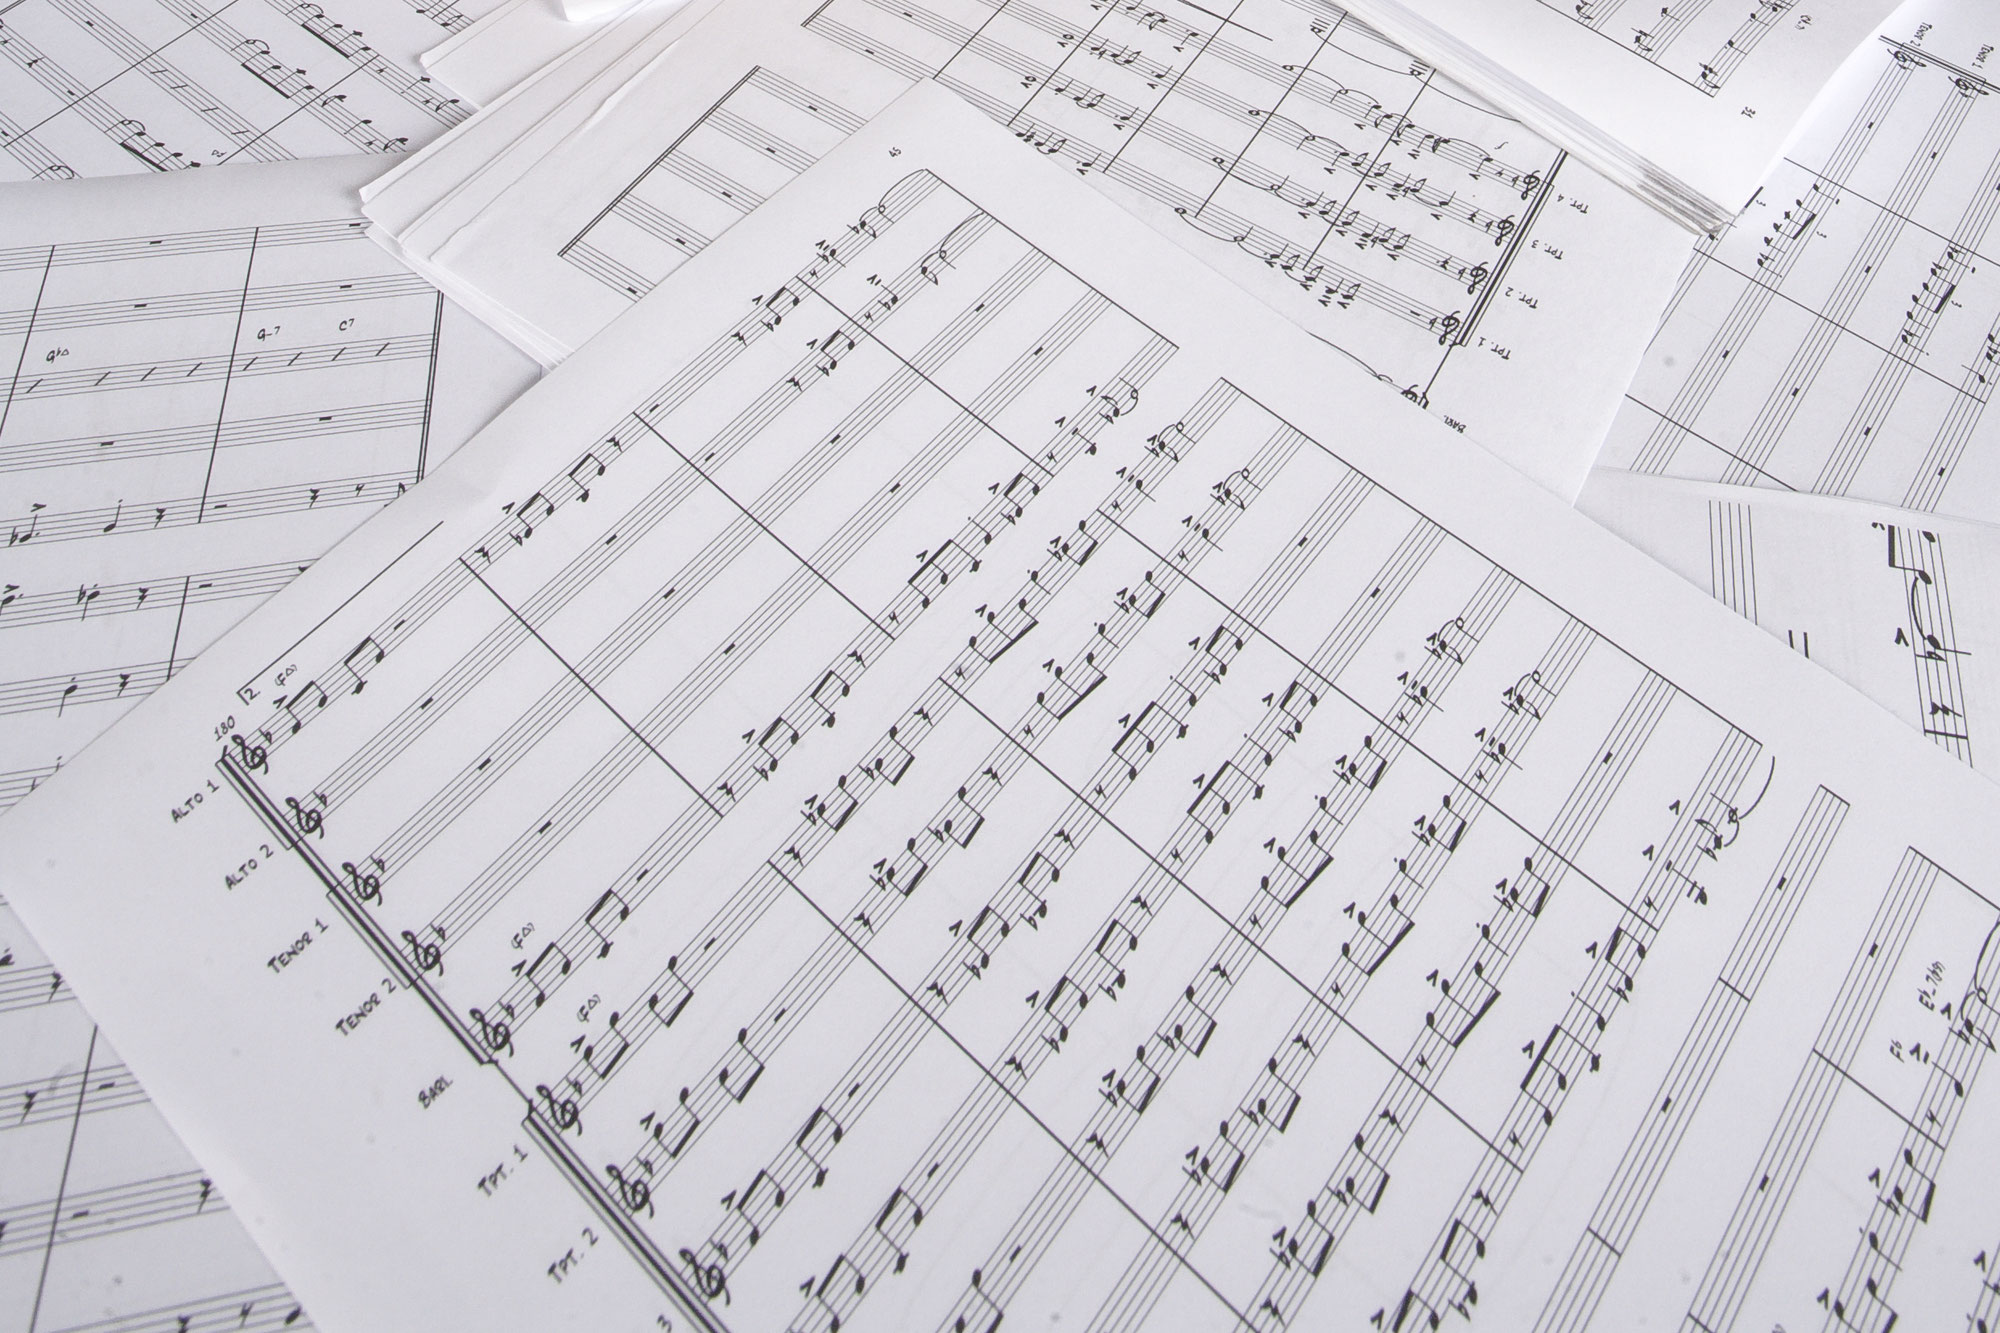 45
180
2.
(F△)
ALTO 1
ALTO 2
TENOR 1
TENOR 2
BARI.
(F△)
(F△)
TPT. 1
TPT. 2
3
G♭△
G-7
C7
TPT. 4
TPT. 3
TPT. 2
TPT. 1
BARI.
TENOR 2
TENOR 1
F♭